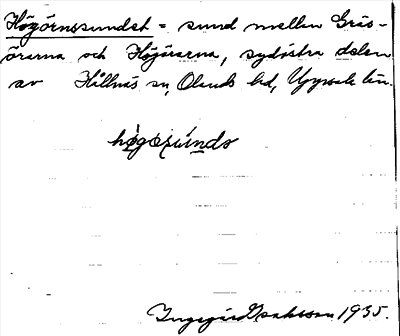 Högörnssundet = sund mellan Gräs-
örarna och Högörarna, sydöstra delen
av Hållnäs sn, Olands hd, Uppsala län.
högösúndə
Ingegärd Isaksson 1935.